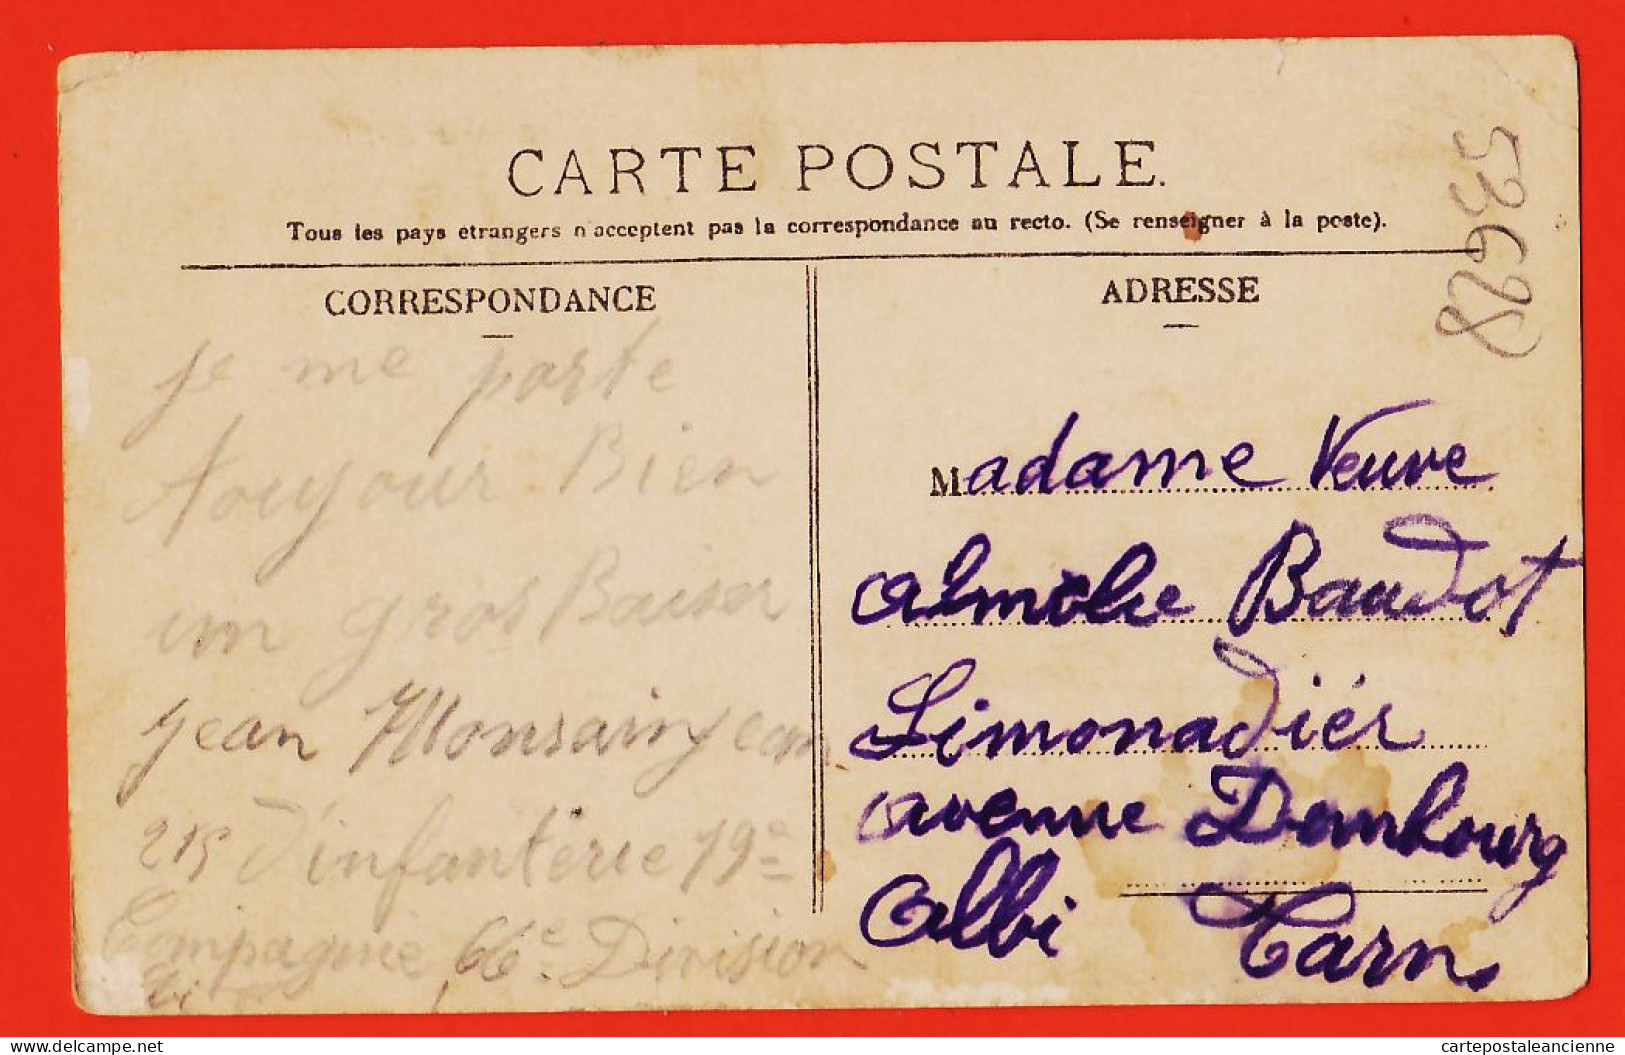 CARTE POSTALE.
Tous les pays etrangers n'acceptent pas la correspondance au recto. (Se renseigner à la poste).
CORRESPONDANCE
je me porte
toujour Bien
un gros Baiser
jean Monsarinjean
215 d'infanterie 19e
Compagnie 66e Division
ADRESSE
53628
Madame Veuve
Baudot
Limonadiér
avenue Dembourg
Albi Tarn
delcampe.net
cartepostaleancienne